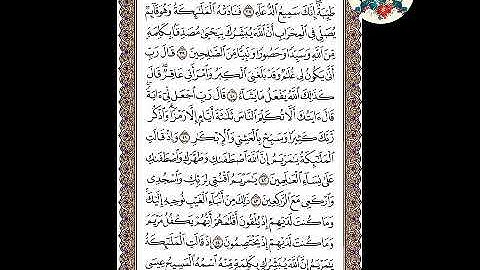 طَيِّبَةً إِنَّكَ سَمِيعُ ٱلدُّعَآءِ ٣٨ فَنَادَتْهُ ٱلْمَلَٰٓئِكَةُ وَهُوَ قَآئِمٌ
يُصَلِّى فِى ٱلْمِحْرَابِ أَنَّ ٱللَّهَ يُبَشِّرُكَ بِيَحْيَىٰ مُصَدِّقًۢا بِكَلِمَةٍ
مِّنَ ٱللَّهِ وَسَيِّدًا وَحَصُورًا وَنَبِيًّا مِّنَ ٱلصَّٰلِحِينَ ٣٩ قَالَ رَبِّ
أَنَّىٰ يَكُونُ لِى غُلَٰمٌ وَقَدْ بَلَغَنِىَ ٱلْكِبَرُ وَٱمْرَأَتِى عَاقِرٌ قَالَ
كَذَٰلِكَ ٱللَّهُ يَفْعَلُ مَا يَشَآءُ ٤٠ قَالَ رَبِّ ٱجْعَل لِّىٓ ءَايَةً
قَالَ ءَايَتُكَ أَلَّا تُكَلِّمَ ٱلنَّاسَ ثَلَٰثَةَ أَيَّامٍ إِلَّا رَمْزًا وَٱذْكُر
رَّبَّكَ كَثِيرًا وَسَبِّحْ بِٱلْعَشِىِّ وَٱلْإِبْكَٰرِ ٤١ وَإِذْ قَالَتِ
ٱلْمَلَٰٓئِكَةُ يَٰمَرْيَمُ إِنَّ ٱللَّهَ ٱصْطَفَىٰكِ وَطَهَّرَكِ وَٱصْطَفَىٰكِ
عَلَىٰ نِسَآءِ ٱلْعَٰلَمِينَ ٤٢ يَٰمَرْيَمُ ٱقْنُتِى لِرَبِّكِ وَٱسْجُدِى
وَٱرْكَعِى مَعَ ٱلرَّٰكِعِينَ ٤٣ ذَٰلِكَ مِنْ أَنۢبَآءِ ٱلْغَيْبِ نُوحِيهِ إِلَيْكَ
وَمَا كُنتَ لَدَيْهِمْ إِذْ يُلْقُونَ أَقْلَٰمَهُمْ أَيُّهُمْ يَكْفُلُ مَرْيَمَ
وَمَا كُنتَ لَدَيْهِمْ إِذْ يَخْتَصِمُونَ ٤٤ إِذْ قَالَتِ ٱلْمَلَٰٓئِكَةُ
يَٰمَرْيَمُ إِنَّ ٱللَّهَ يُبَشِّرُكِ بِكَلِمَةٍ مِّنْهُ ٱسْمُهُ ٱلْمَسِيحُ عِيسَى